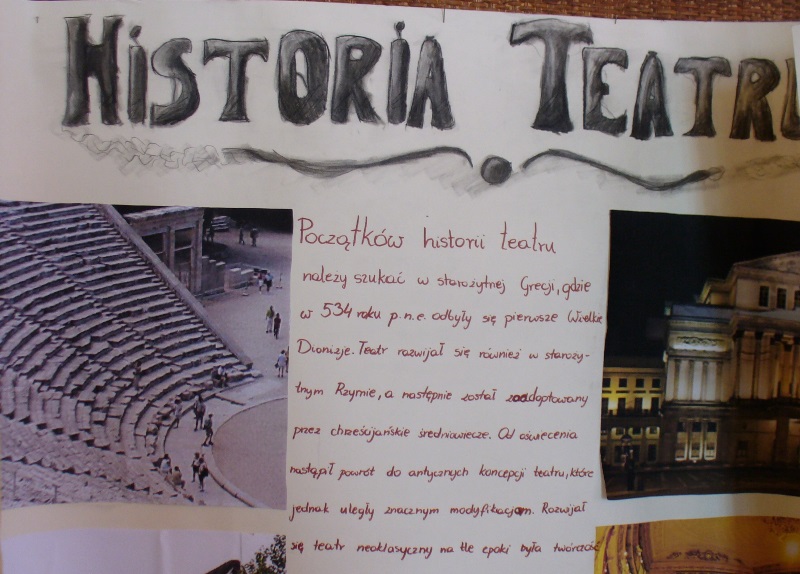 HISTORIA TEATRU
Początków historii teatru
należy szukać w starożytnej Grecji, gdzie
w 534 roku p.n.e. odbyły się pierwsze Wielkie
Dionizje. Teatr rozwijał się również w staroży-
tnym Rzymie, a następnie został zaadoptowany
przez chrześcijańskie średniowiecze. Od oświecenia
nastąpił powrót do antycznych koncepcji teatru, które
jednak uległy znacznym modyfikacjom. Rozwijał
się teatr neoklasyczny na tle epoki była twórczość